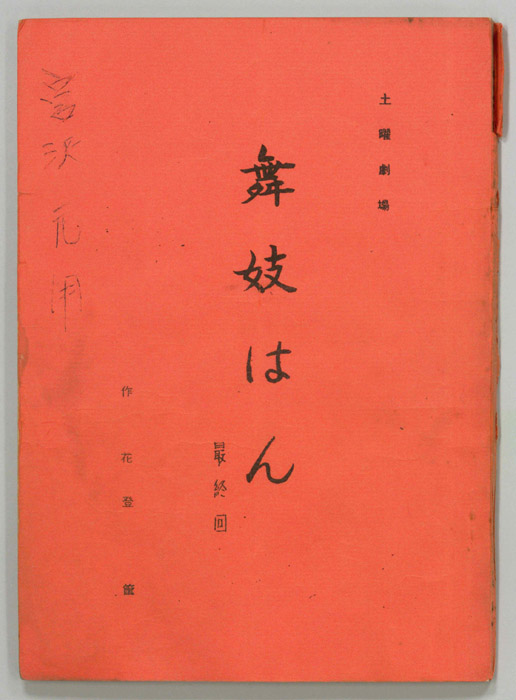 土曜劇場
舞妓はん
最終回
作 花登 筺